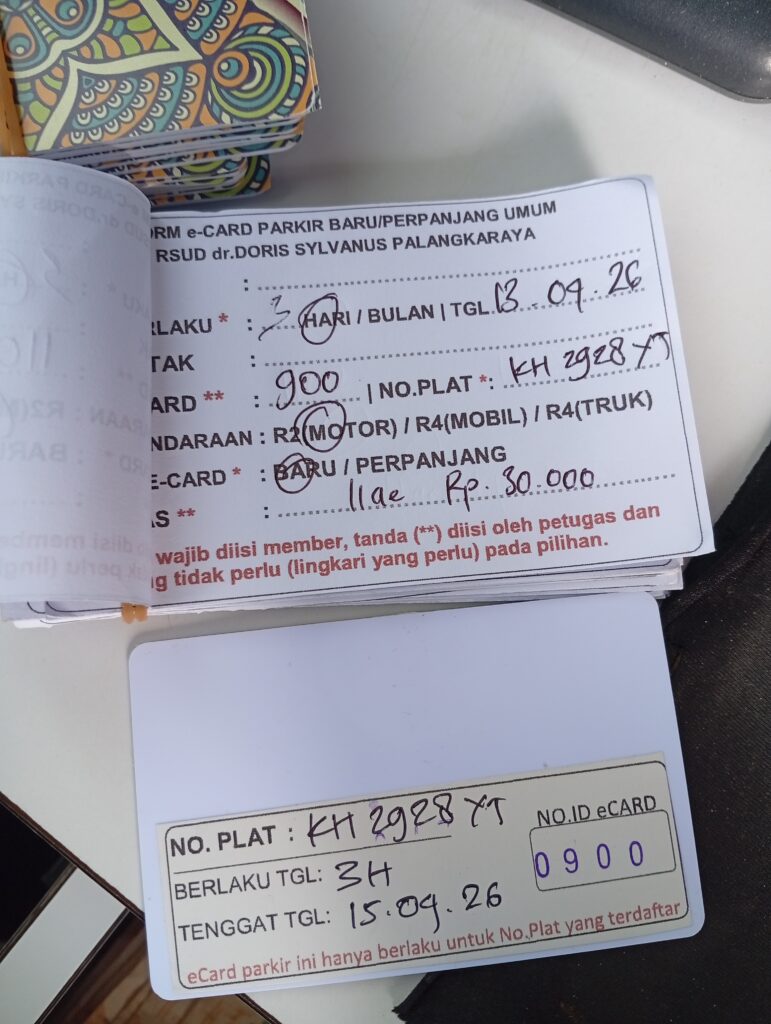 ORM e-CARD PARKIR BARU/PERPANJANG UMUM
RSUD dr.DORIS SYLVANUS PALANGKARAYA
:
RLAKU * : 3 HARI / BULAN | TGL. 13.09.26
TAK :
ARD ** : 900 | NO.PLAT *: KH 2928 YT
NDARAAN : R2(MOTOR) / R4(MOBIL) / R4(TRUK)
E-CARD * : BARU / PERPANJANG
AS ** : Rp. 30.000
wajib diisi member, tanda (**) diisi oleh petugas dan
g tidak perlu (lingkari yang perlu) pada pilihan.
NO. PLAT : KH 2928 YT
NO.ID eCARD
0900
BERLAKU TGL: 3H
TENGGAT TGL: 15.09.26
eCard parkir ini hanya berlaku untuk No.Plat yang terdaftar